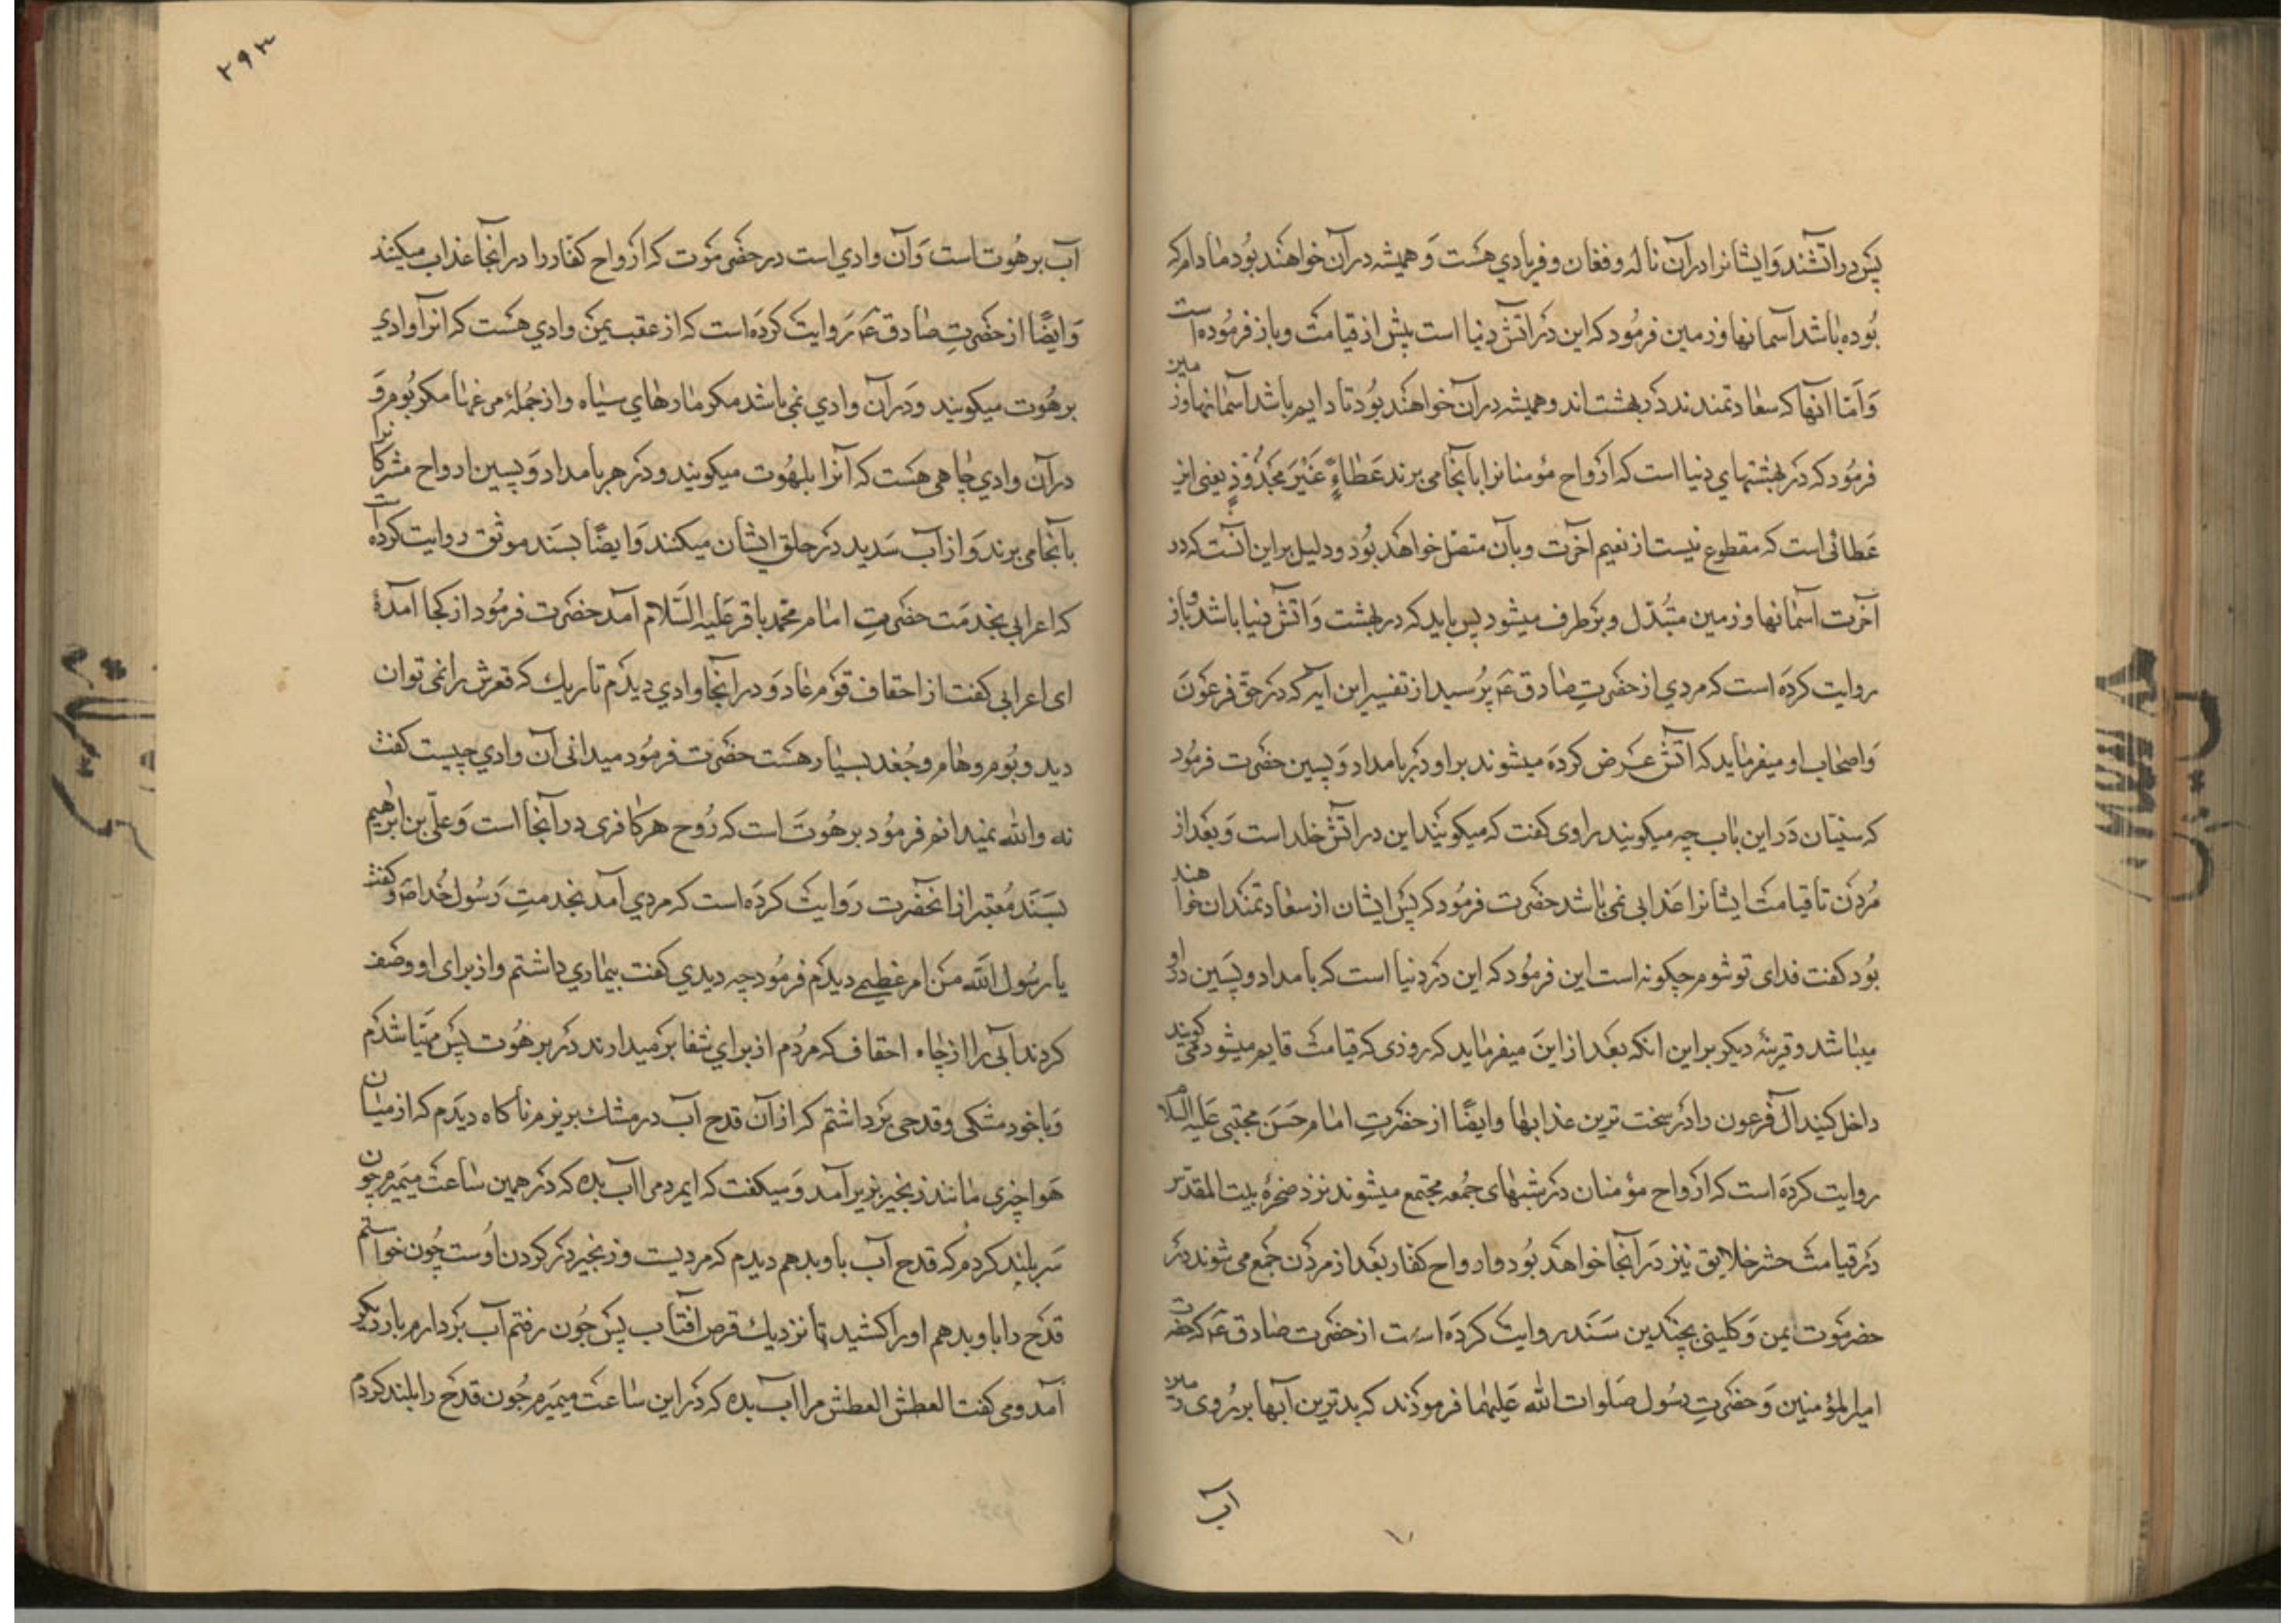 پس در آتشند و ایشانرا در آن ناله و فغان و فریادی هست و همیشه در آن خواهند بود مادام که
بوده باشد آسمانها و زمین فرمود که این در آتش دنیا است پیش از قیامت و باز فرموده است
و اما آنها که سعادتمندند در بهشت اند و همیشه در آن خواهند بود تا دایم باشد آسمانها و زمین
فرمود که در بهشتهای دنیا است که ارواح مؤمنانرا بآنجا می برند عَطاءً غَیْرَ مَجْذُوذٍ یعنی این
عطائی است که مقطوع نیست از نعیم آخرت و بآن متصل خواهد بود و دلیل بر این آنست که در
آخرت آسمانها و زمین متبدّل و برطرف میشود پس باید که در بهشت و آتش دنیا باشد و باز
روایت کرده است که مردی از حضرتِ صادق ع پرسید از تفسیر این آیه که در حقّ فرعون
و اصحاب او میفرماید که آتش عرض کرده میشوند بر او در بامداد و پسین حضرت فرمود
که سنیان در این باب چه میکویند راوی کفت که میکویند این در آتش خلد است و بعد از
مردن تا قیامت ایشانرا عذابی نمی باشد حضرت فرمود که پس ایشان از سعادتمندان خواهند
بود کفت فدای تو شوم چکونه است این فرمود که این در دنیا است که بامداد و پسین در او
میباشد و قرینهٔ دیکر بر این آنکه بعد از این میفرماید که روزی که قیامت قایم میشود می کویند
داخل کنید آل فرعون را در سخت ترین عذابها و ایضًا از حضرتِ امام حَسَن مجتبی علیه السلام
روایت کرده است که ارواح مؤمنان در شبهای جمعه مجتمع میشوند نزد صخرهٔ بیت المقدس
در قیامت حشر خلایق نیز در آنجا خواهد بود و ارواح کفار بعد از مردن جمع می شوند در
حضرموت یمن و کلینی بچندین سَنَد روایت کرده است از حضرت صادق ع که حضرت
امیرالمؤمنین و حضرتِ رسول صلوات الله علیهما فرمودند که بدترین آبها بر روی زمین
آب
۲۹۳
آب برهُوت است و آن وادی است در حضرموت که ارواح کفار را در آنجا عذاب میکنند
و ایضًا از حضرتِ صادق ع روایت کرده است که از عقب یمن وادی هست که آنرا وادی
برهُوت میکویند و در آن وادی نمی باشد مکر مارهای سیاه و از جملهٔ مرغها مکر بوم و
در آن وادی چاهی هست که آنرا بلهُوت میکویند و در هر بامداد و پسین ارواح مشرکانرا
بآنجا می برند و از آب سدید در حلق ایشان میکنند و ایضًا بسند موثق روایت کرده است
که اعرابی بخدمت حضرتِ امام محمد باقر علیه السّلام آمد حضرت فرمود از کجا آمدهٔ
ای اعرابی کفت از احقاف قوم عاد و در آنجا وادی دیدم تاریك که قعرش را نمی توان
دید و بوم و هام و جُغد بسیار هست حضرت فرمود میدانی آن وادی چیست کفت
نه والله نمیدانم فرمود برهُوت است که رُوح هر کافری در آنجا است و علّی بن ابراهیم
بسَنَد مُعتبر از آنحضرت روایت کرده است که مردی آمد بخدمتِ رسُول خُدا ص و کفت
یا رسُول الله من امر عظیمی دیدم فرمود چه دیدی کفت بیماری داشتم و از برای او وصف
کردند آبی را از چاه احقاف که مردُم از برای شفا برمیدارند در برهُوت پس مهیّا شدم
و با خود مشکی و قدحی برداشتم که از آن قدح آب در مشك بریزم ناکاه دیدم که از میان
هوا چیزی مانند زنجیر بزیر آمد و میکفت که ای مرد مرا آب بده که در همین ساعت میمیرم چون
سر بلند کردم که قدح آب باو بدهم دیدم که مردیست و زنجیر در کردن اوست چون خواستم
قدح را باو بدهم او را کشید تا نزدیك قرص آفتاب پس چون رفتم آب بردارم بار دیکر
آمد و می کفت العطش العطش مرا آب بده که در این ساعت میمیرم چون قدح را بلند کردم